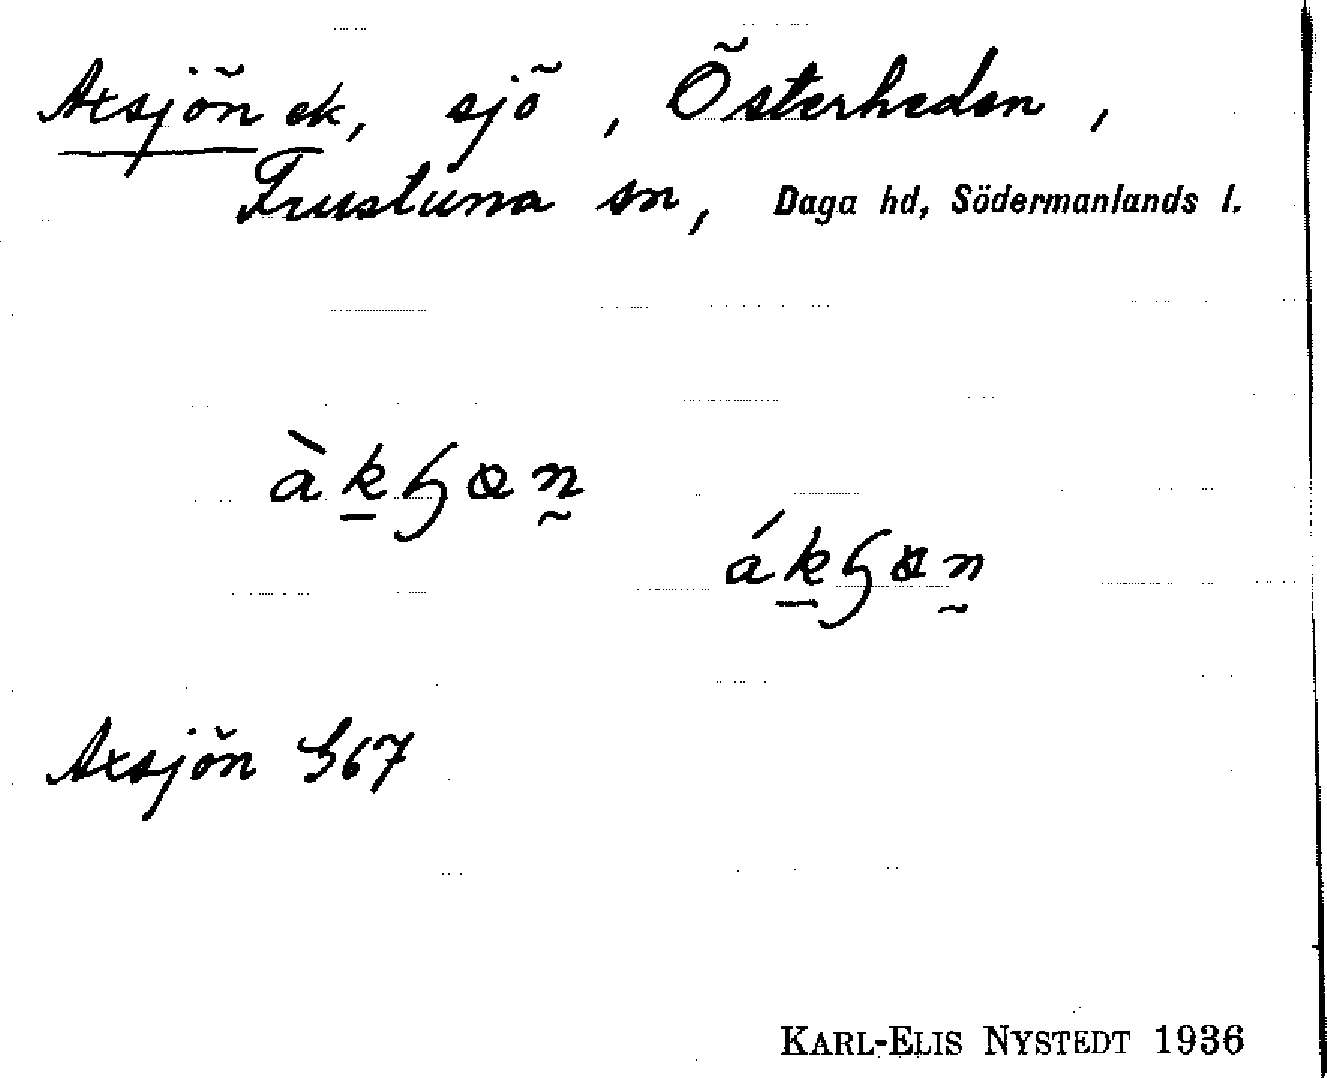 Axsjön ek, sjö, Österheden,
Frustuna sn, Daga hd, Södermanlands l.
àkɧøn̰
ákɧøn̰
Axsjön G67
KARL-ELIS NYSTEDT 1936